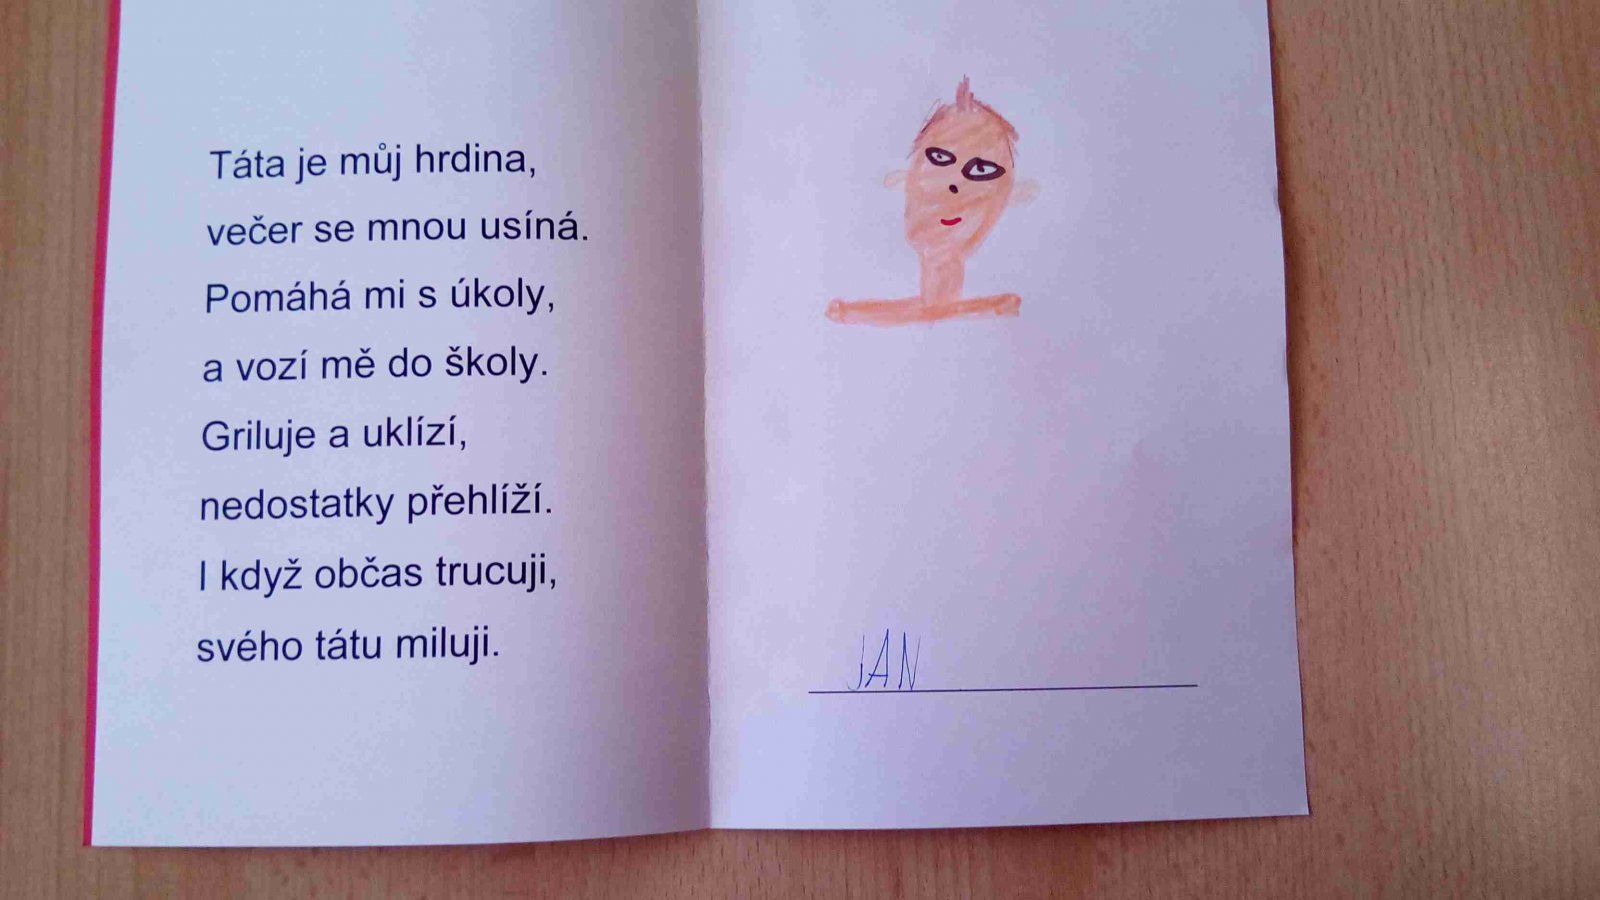 Táta je můj hrdina,
večer se mnou usíná.
Pomáhá mi s úkoly,
a vozí mě do školy.
Griluje a uklízí,
nedostatky přehlíží.
I když občas trucuji,
svého tátu miluji.
JAN